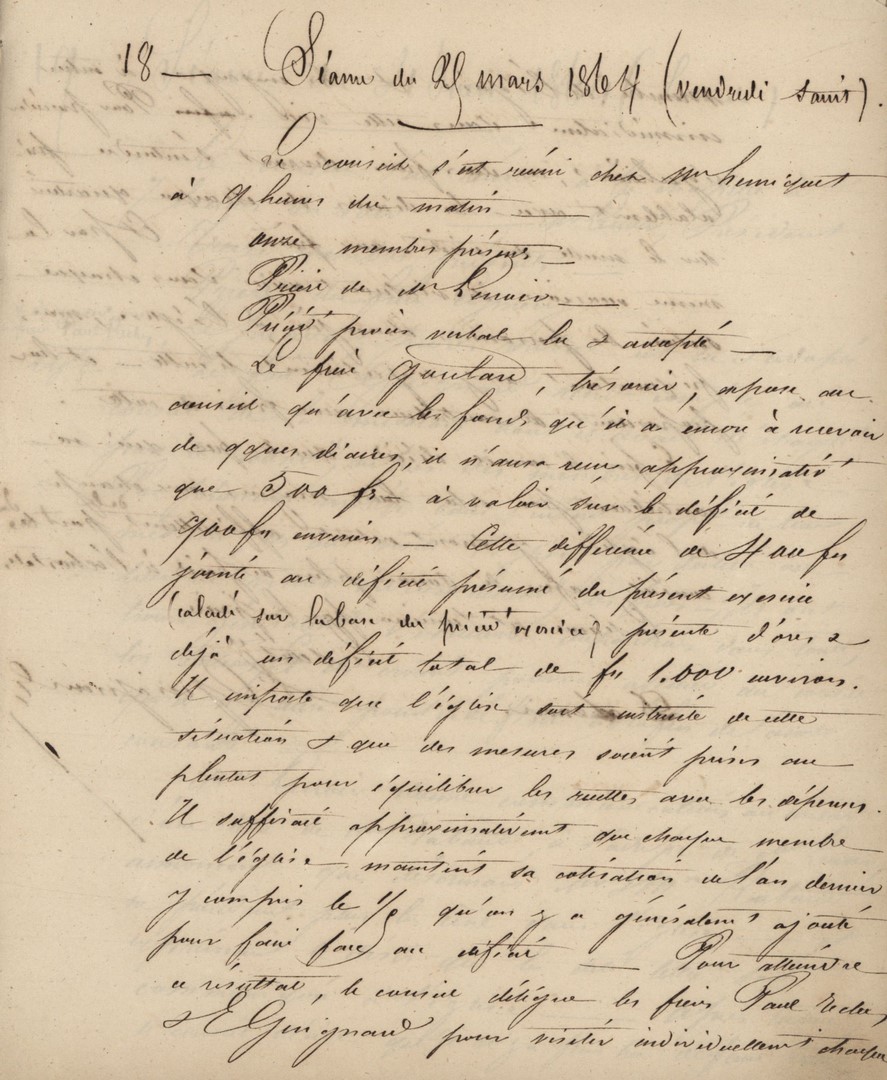 18 — Séance du 25 mars 1864 (vendredi saint).
Le conseil s'est réuni chez Mr henriquet
à 9 heures du matin —
onze membres présens —
Prière de Mr Lenoir —
Précédt procès verbal lu & adopté —
Le frère Goulard, trésorier, expose au
conseil qu'avec les fonds qu'il a encore à recevoir
de qques diacres, il n'aura reçu approximativt
que 500 frs à valoir sur le déficit de
900 frs environ — Cette différence de 400 frs
jointe au déficit présumé du présent exercice
(calculé sur la base du précédt exercice) présente d'ores &
déjà un déficit total de frs 1.000 environ.
Il importe que l'église soit instruite de cette
situation & que des mesures soient prises au
plutot pour équilibrer les recettes avec les dépenses.
Il suffirait approximativement que chaque membre
de l'église maintint sa cotisation de l'an dernier
y compris le qu'on y a généralemt ajouté
pour faire face au déficit — Pour atteindre
ce résultat, le conseil délègue les frères Paul
& E Guignard pour visiter individuellement chaque